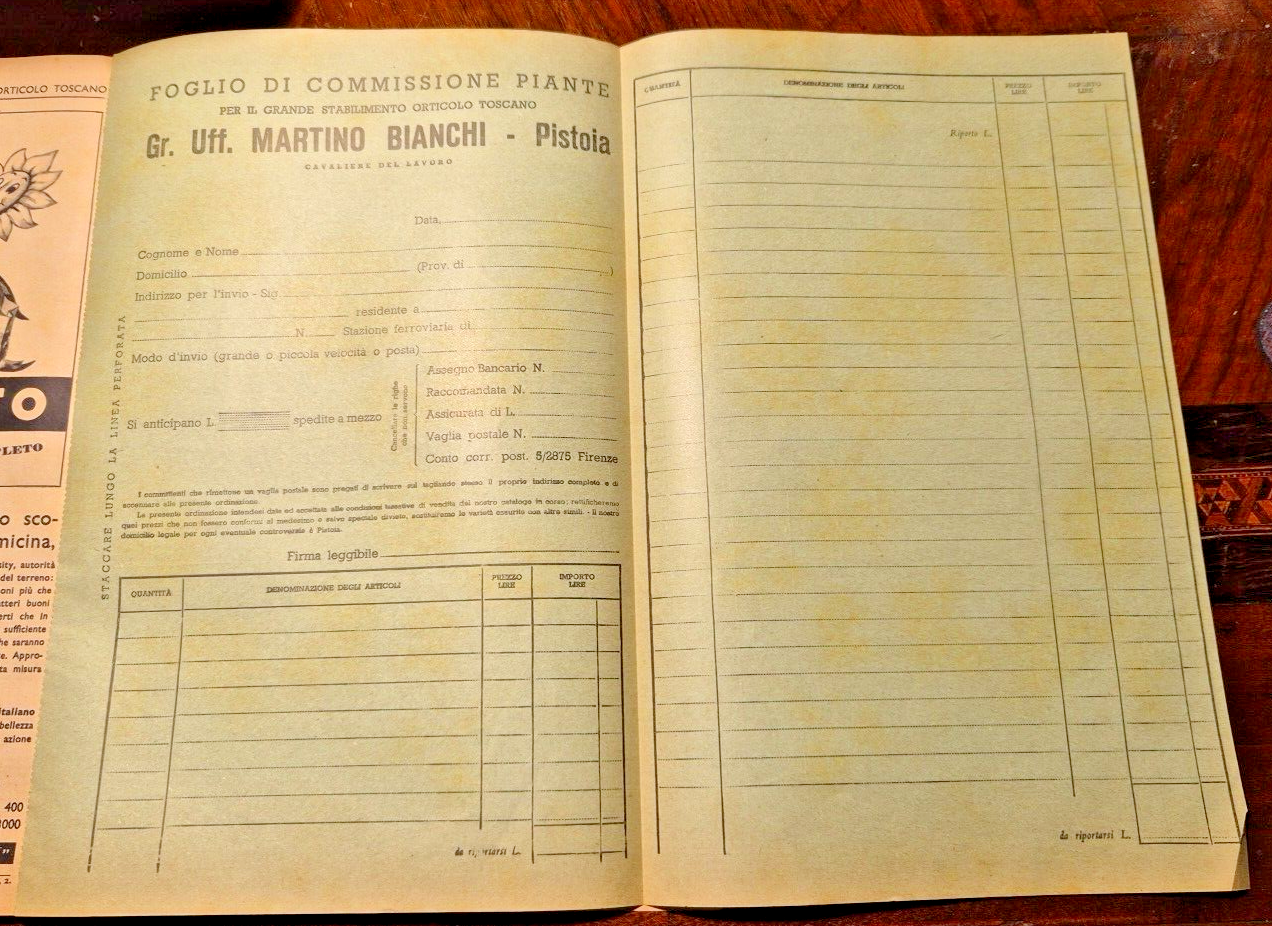 ORTICOLO TOSCANO
TO
PLETO
O SCO-
micina,
sity, autorità
del terreno:
oni più che
tteri buoni
erti che in
sufficiente
he saranno
e. Appro-
ta misura
italiano
bellezza
azione
400
1000
2.
FOGLIO DI COMMISSIONE PIANTE
PER IL GRANDE STABILIMENTO ORTICOLO TOSCANO
Gr. Uff. MARTINO BIANCHI - Pistoia
CAVALIERE DEL LAVORO
Data,
Cognome e Nome
Domicilio (Prov. di )
Indirizzo per l'invio - Sig.
residente a
N. Stazione ferroviaria di
Modo d'invio (grande o piccola velocità o posta)
Si anticipano L. spedite a mezzo
Cancellare le righe
che non servono
Assegno Bancario N.
Raccomandata N.
Assicurata di L.
Vaglia postale N.
Conto corr. post. 5/2875 Firenze
STACCARE LUNGO LA LINEA PERFORATA
I committenti che rimettono un vaglia postale sono pregati di scrivere sul tagliando stesso il proprio indirizzo completo e di
accennare alla presente ordinazione.
La presente ordinazione intendesi data ed accettata alle condizioni tassative di vendita del nostro catalogo in corso; rettificheremo
quei prezzi che non fossero conformi al medesimo e salvo speciale divieto, sostituiremo le varietà esaurite con altre simili. - Il nostro
domicilio legale per ogni eventuale controversia è Pistoia.
Firma leggibile
QUANTITÀ DENOMINAZIONE DEGLI ARTICOLI PREZZO LIRE IMPORTO LIRE
da riportarsi L.
QUANTITÀ DENOMINAZIONE DEGLI ARTICOLI PREZZO LIRE IMPORTO LIRE
Riporto L.
da riportarsi L.